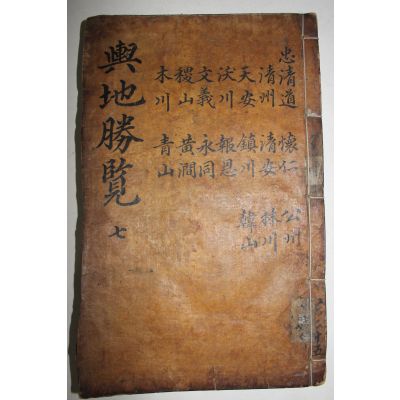 忠清道 懷仁 公州
清州 清安 林川
天安 鎮川 韓山
沃川 報恩
文義 永同
稷山 黃澗
木川 青山
輿地勝覽 七